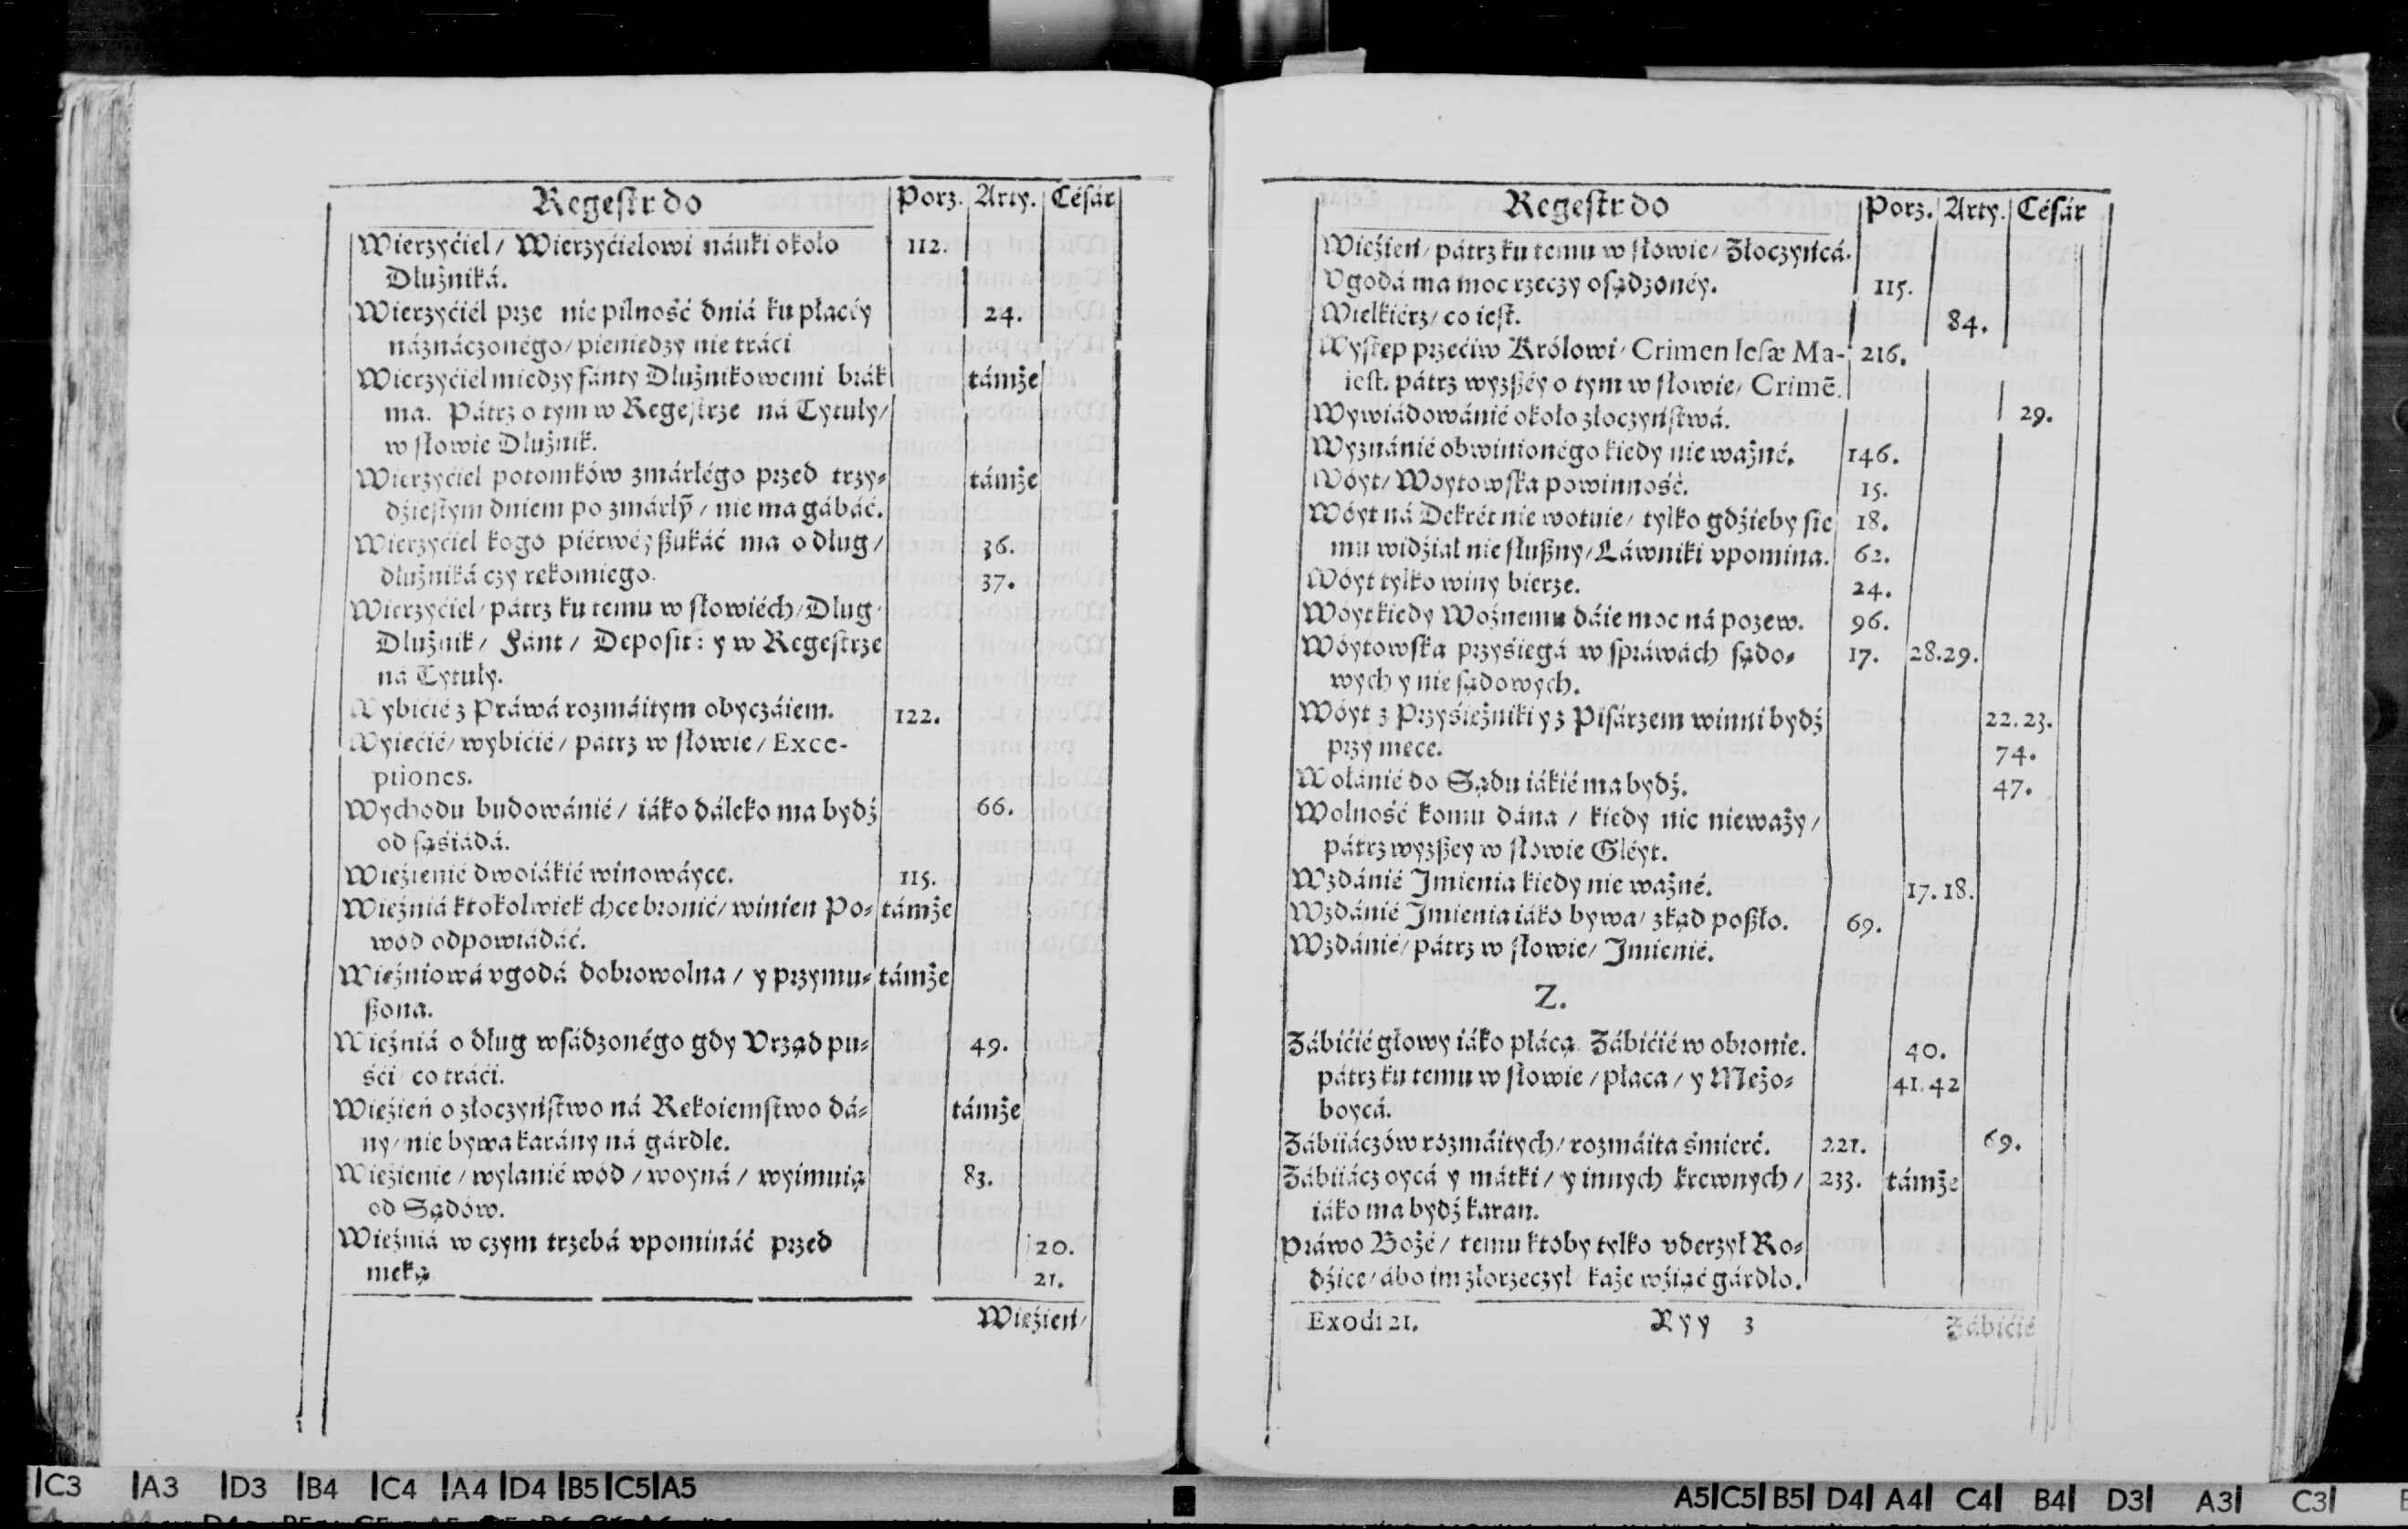 Regeſtr do Porz. Arty. Céſár
Wierzyćiel/ Wierzyćielowi náuki około 112.
Dlużniká.
Wierzyćiél prze nie pilność dniá ku płacéy 24.
náznáczonégo/ pieniedzy nie tráći
Wierzyćiél miedzy fánty Dlużnikowemi brák támże
ma. Pátrz o tym w Regeſtrze ná Tytuły/
w ſłowie Dlużnik.
Wierzyćiel potomków zmárłégo przed trzy⸗ támże
dźieſtym dniem po zmárłỹ/ nie ma gábáć.
Wierzyćiel kogo piérwéy ßukáć ma o dług/ 36.
dłużniká czy rekomiego. 37.
Wierzyćiel/ pátrz ku temu w ſłowiéch/ Dlug/
Dlużnik/ Fánt/ Depoſit: y w Regeſtrze
ná Tytuły.
Wybićié z Práwá rozmáitym obyczáiem. 122.
Wyiećié/ wybićié/ pátrz w ſłowie/ Exce-
ptiones.
Wychodu budowánié/ iáko dáleko ma bydź 66.
od ſąśiádá.
Wieźienié dwoiákié winowáyce. 115.
Wieźniá ktokolwiek chce bronić/ winien Po⸗ támże
wód odpowiádáć.
Wieźniowá vgodá dobrowolna/ y przymu⸗ támże
ßona.
Wieźniá o dług wſádzonégo gdy Vrząd pu⸗ 49.
śći/ co tráći.
Wieźień o złoczyńſtwo ná Rekoiemſtwo dá⸗ támże
ny/ nie bywa karány ná gárdle.
Wieźienie/ wylanié wód/ woyná/ wyimuią 83.
od Sądów.
Wieźniá w czym trzebá vpomináć przed 20.
meką 21.
Wieźień/
Regeſtr do Porz. Arty. Céſár
Wieźień/ pátrz ku temu w ſłowie/ Złoczyńcá.
Vgodá ma moc rzeczy oſądzonéy. 115.
Wielkiérz/ co ieſt. 84.
Wyſtep przećiw Królowi/ Crimen leſæ Ma- 216.
ieſt. pátrz wyzßéy o tym w ſłowie/ Crimẽ.
Wywiádowánié około złoczyńſtwá. 29.
Wyznánié obwinionégo kiedy nie ważné. 146.
Wóyt/ Woytowſka powinność. 15.
Wóyt ná Dekrét nie wotuie/ tylko gdźieby ſie 18.
mu widźiał nie ſłußny/ Láwniki vpomina. 62.
Wóyt tylko winy bierze. 24.
Wóyt kiedy Woźnemu dáie moc ná pozew. 96.
Wóytowſka przyśiegá w ſpráwách ſądo⸗ 17. 28.29.
wych y nie ſądowych.
Wóyt z Przyśieżniki y z Piſárzem winni bydź 22.23.
przy mece. 74.
Wołánié do Sądu iákié ma bydź. 47.
Wolność komu dána/ kiedy nic nieważy/
pátrz wyzßey w ſłowie Gléyt.
Wzdánié Jmienia kiedy nie ważné. 17.18.
Wzdánié Jmienia iáko bywa/ zkąd poßło. 69.
Wzdánié/ pátrz w ſłowie/ Jmienié.
Z.
Zábićié głowy iáko płácą. Zábićié w obronie. 40.
pátrz ku temu w ſłowie/ płaca/ y Mężo⸗ 41.42
boycá.
Zábiiáczów rozmáitych/ rozmáita śmierć. 221. 69.
Zábiiácz oycá y mátki/ y innych krewnych/ 233. támże
iáko ma bydź karan.
Práwo Bożé/ temu któby tylko vderzył Ro⸗
dźice/ ábo im złorzeczył/ każe wźiąć gárdło.
Exodi 21. Ryy 3 Zábićié
C3 A3 D3 B4 C4 A4 D4 B5 C5 A5
A5 C5 B5 D4 A4 C4 B4 D3 A3 C3